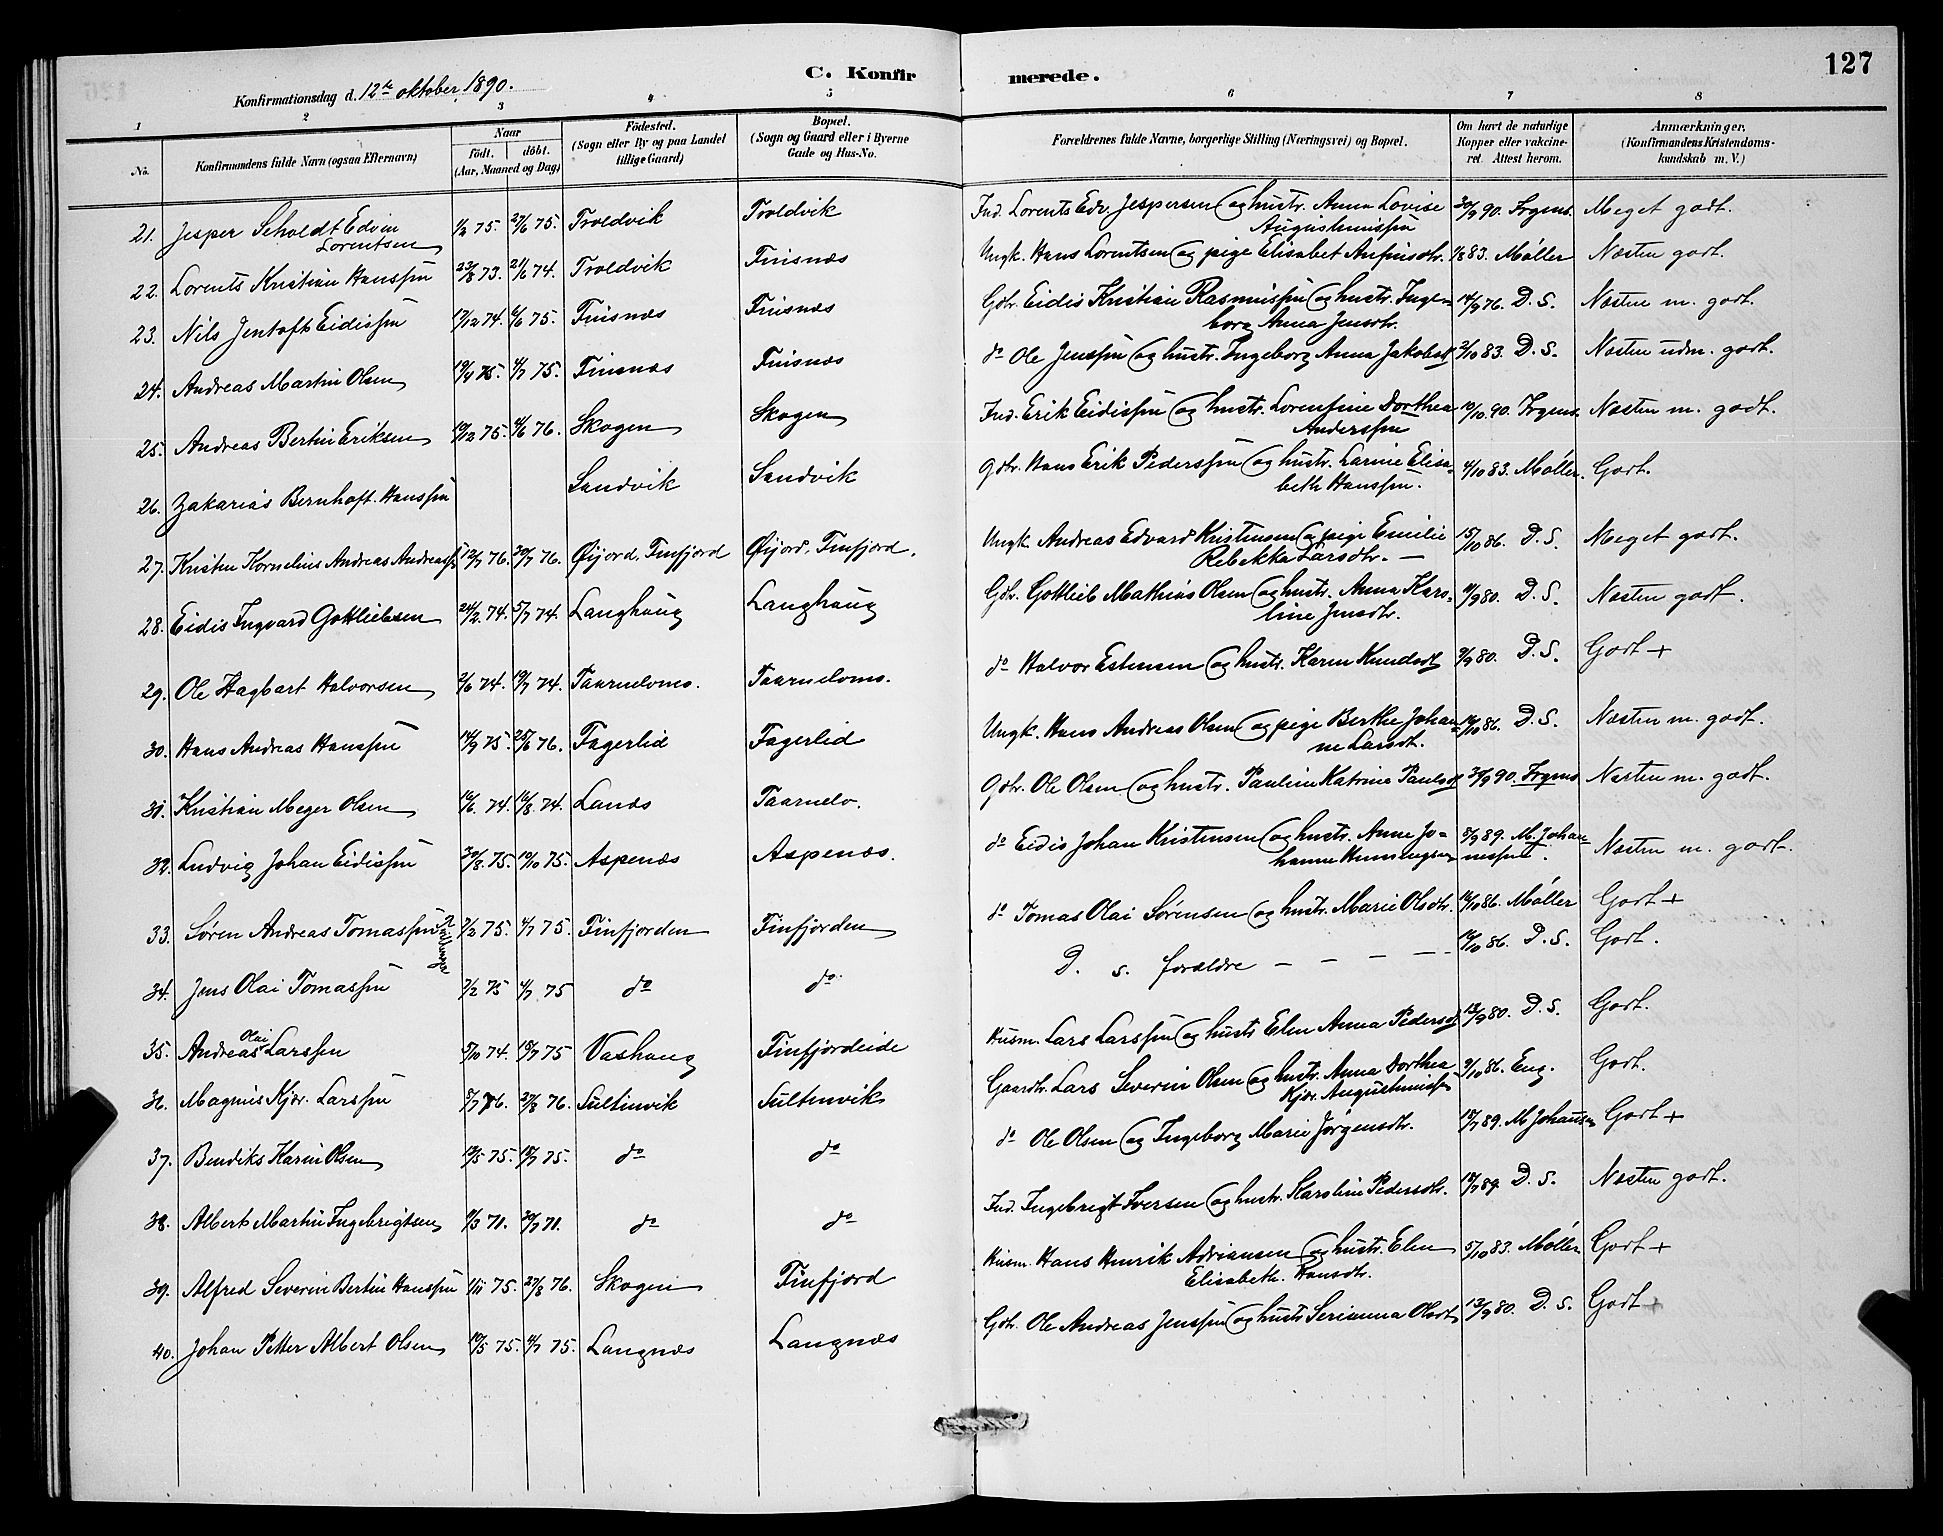 127
C. Konfirmerede.
Konfirmationsdag d. 12te oktober 1890.
1 2 3 4 5 6 7 8
No. Konfirmandens fulde Navn (ogsaa Efternavn) Naar født. døbt. (Aar, Maaned og Dag) Fødested. (Sogn eller By og paa Landet tillige Gaard) Bopæl. (Sogn og Gaard eller i Byerne Gade og Hus-No. Forældrenes fulde Navne, borgerlige Stilling (Næringsvei) og Bopæl. Om havt de naturlige Kopper eller vakcineret. Attest herom. Anmærkninger. (Konfirmandens Kristendomskundskab m. V.)
21. Jesper Scholdt Edvin Lorentsen 1/2 75. 27/6 75. Troldvik Troldvik Ind. Lorents Edv. Jespersen og hustr. Anna Lovise Augustinussen 30/9 90. Meget godt.
22. Lorents Kristian Hanssen 23/8 73. 21/6 74. Troldvik Finsnæs Ungk. Hans Lorentsen og pige Elisabet Anfinsdtr. 83. Møller Næsten godt.
23. Nils Jentoft Eidissen 17/12 74. 6/6 75. Finsnæs Finsnæs Gdr. Eidis Kristian Rasmussen og hustr. Ingeborg Anna Jensdtr. 14/9 76. D. S. Næsten m. godt.
24. Andreas Martin Olsen 19/4 75. 4/7 75. Finsnæs Finsnæs do Ole Jenssen og hustr. Ingeborg Anna Jakobsd 2/10 83. D. S. Næsten udm. godt.
25. Andreas Bertin Eriksen 19/12 75. 4/6 76. Skogen Skogen Ind. Erik Eidissen og hustr. Lorentine Dorthea Anderssen 10/10. 90. Næsten m. godt.
26. Zakarias Bernhoft Hanssen Sandvik Sandvik Gdr. Hans Erik Pederssen og hustr. Larine Elisabeth Hanssen. 4/10 83. Møller. Godt.
27. Kristen Kornelius Andreas Andreass 12/7 76. 30/7 76. Øijord, Finfjord Øijord, Finfjord. Ungk. Andreas Edvard Kristensen og pige Emilie Rebekka Larsdtr. — 15/10 86. D. S. Meget godt.
28. Eidis Ingvard Gottliebsen 24/2 74. 5/7 74. Langhaug Langhaug Gdr. Gottlieb Mathias Olsen og hustr. Anna Karoline Jensdtr. 9/9 80. D. S. Næsten godt.
29. Ole Hagbart Halvorsen 2/6 74. 19/7 74. Taarnelvmo. Taarnelvmo. do Halvor Estensen og hustr. Karen Knudsd 9/9 80. D. S. Godt +
30. Hans Andreas Hanssen 14/9 75. 25/6 76. Fagerlid Fagerlid Ungk. Hans Andreas Olsen og pige Berthe Johanne Larsdt. 16/10 86. D. S. Næsten m. godt.
31. Kristian Meyer Olsen 16/6 74. 16/8 74. Lanæs Taarnelv. Gdr. Ole Olsen og hustr. Pauline Katrine Paulsd 30/9 90. Næsten m. godt.
32. Ludvig Johan Eidissen 30/8 75. 10/10 75. Aspenæs Aspenæs. do Eidis Johan Kristensen og hustr. Anne Johanna Henningsen 8/9 89. M. Johannessen. Næsten m. godt.
33. Søren Andreas Tomassen Tvillinger 7/2 75. 4/7 75. Finfjorden Finfjorden do Tomas Olai Sørensen og hustr. Marie Olsdtr. 16/10 86. Møller Godt +
34. Jens Olai Tomassen 7/2 75 4/7 75 do do D. s. forældre — — — — 16/10 86. D. S. Godt.
35. Andreas Olai Larssen 5/10 74. 18/7 75 Vashaug Finfjordeide Husm. Lars Larssen og hustr Elen Anna Pedersd 13/9 80. D. S. Godt.
36. Magnus Kjær. Larssen 7/7 76. 27/8 76. Sultinvik Sultinvik Gaardbr. Lars Severin Olsen og hustr. Anna Dorthea Kjær Augustinusd 9/10 86. Eng. Godt.
37. Bendiks Karin Olsen 19/5 75. 18/7 75. do do do Ole Olsen og Ingeborg Marie Jørgensdtr. 18/7 89. M Johansen Godt +
38. Albert Martin Ingebrigtsen 11/3 71. 30/7 71. do do Ind. Ingebrigt Iversen og hustr. Karoline Pedersdtr. 18/7 89. D. S. Næsten godt.
39. Alfred Severin Bertin Hanssen 1/11 75. 27/8 76. Skogen Finfjord Husm. Hans Henrik Adriansen og hustr. Elen Elisabeth. Hansdtr. 5/10 83. Møller Godt +
40. Johan Petter Albert Olsen 10/5 75. 4/7 75. Langnæs Langnæs Gdr. Ole Andreas Jenssen og hustr Serianna Olsdt 13/9 80. D. S. Godt +